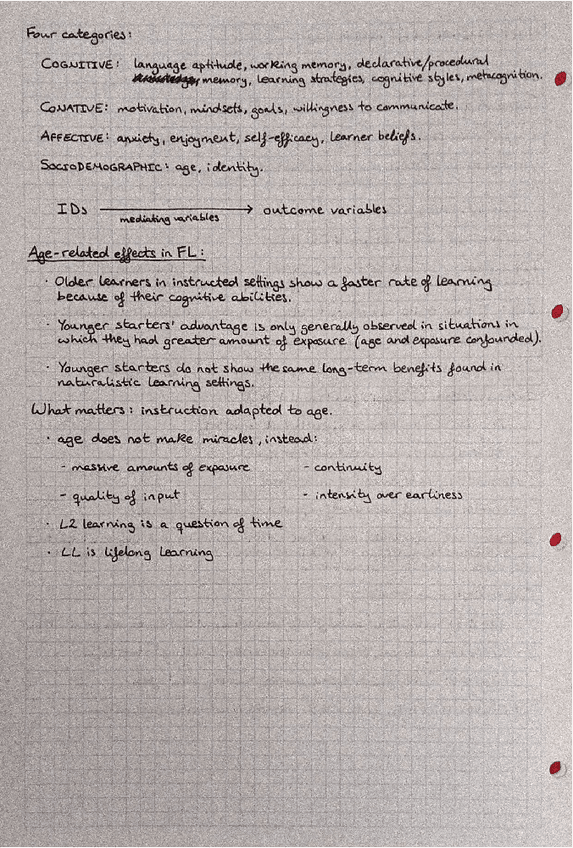 Four categories:
COGNITIVE: language aptitude, working memory, declarative/procedural
memory, learning strategies, cognitive styles, metacognition.
CONATIVE: motivation, mindsets, goals, willingness to communicate.
AFFECTIVE: anxiety, enjoyment, self-efficacy, learner beliefs.
SOCIODEMOGRAPHIC: age, identity.
IDs → outcome variables
mediating variables
Age-related effects in FL:
· Older learners in instructed settings show a faster rate of learning
because of their cognitive abilities.
· Younger starters' advantage is only generally observed in situations in
which they had greater amount of exposure (age and exposure confounded).
· Younger starters do not show the same long-term benefits found in
naturalistic learning settings.
What matters: instruction adapted to age.
· age does not make miracles, instead:
- massive amounts of exposure - continuity
- quality of input - intensity over earliness
· L2 learning is a question of time
· LL is lifelong learning